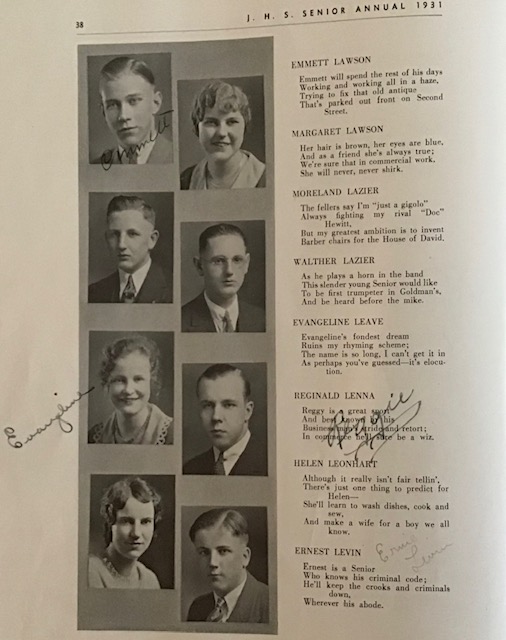 38
J. H. S. SENIOR ANNUAL 1931
Emmett
Evangeline
EMMETT LAWSON
Emmett will spend the rest of his days
Working and working all in a haze,
Trying to fix that old antique
That's parked out front on Second
Street.
MARGARET LAWSON
Her hair is brown, her eyes are blue,
And as a friend she's always true;
We're sure that in commercial work,
She will never, never shirk.
MORELAND LAZIER
The fellers say I'm "just a gigolo"
Always fighting my rival "Doc"
Hewitt,
But my greatest ambition is to invent
Barber chairs for the House of David.
WALTHER LAZIER
As he plays a horn in the band
This slender young Senior would like
To be first trumpeter in Goldman's,
And be heard before the mike.
EVANGELINE LEAVE
Evangeline's fondest dream
Ruins my rhyming scheme;
The name is so long, I can't get it in
As perhaps you've guessed—it's elocu-
tion.
REGINALD LENNA
Reggy is a great sport
And best known by his
Business man's stride and retort;
In commerce he'll sure be a wiz.
Reggie
HELEN LEONHART
Although it really isn't fair tellin',
There's just one thing to predict for
Helen—
She'll learn to wash dishes, cook and
sew,
And make a wife for a boy we all
know.
ERNEST LEVIN
Ernie
Levin
Ernest is a Senior
Who knows his criminal code;
He'll keep the crooks and criminals
down,
Wherever his abode.